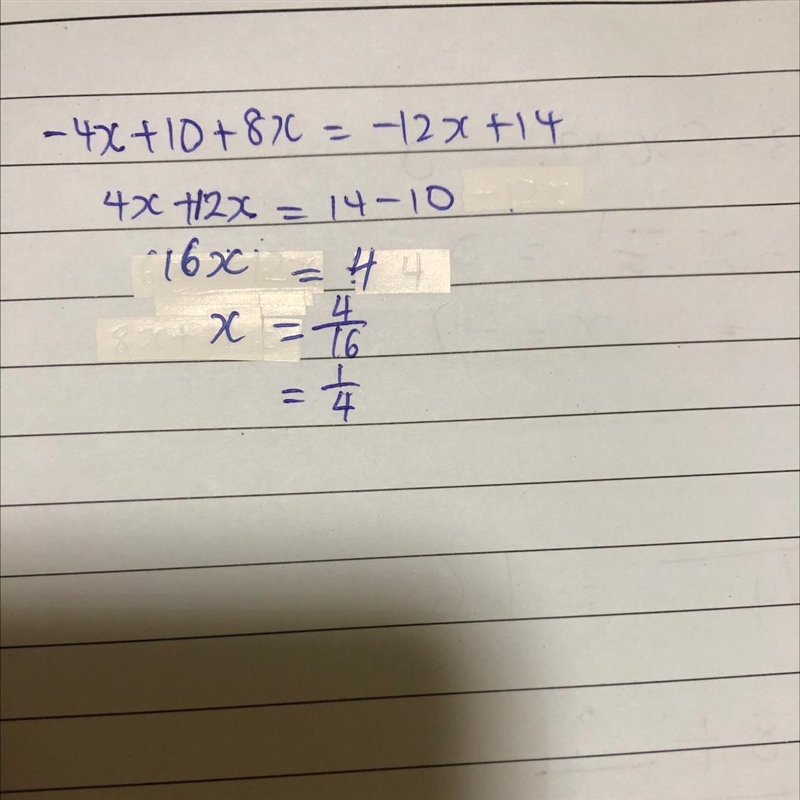 -4x+10+8x = -12x+14
4x+12x = 14-10
16x = 4
x = 4/16
= 1/4